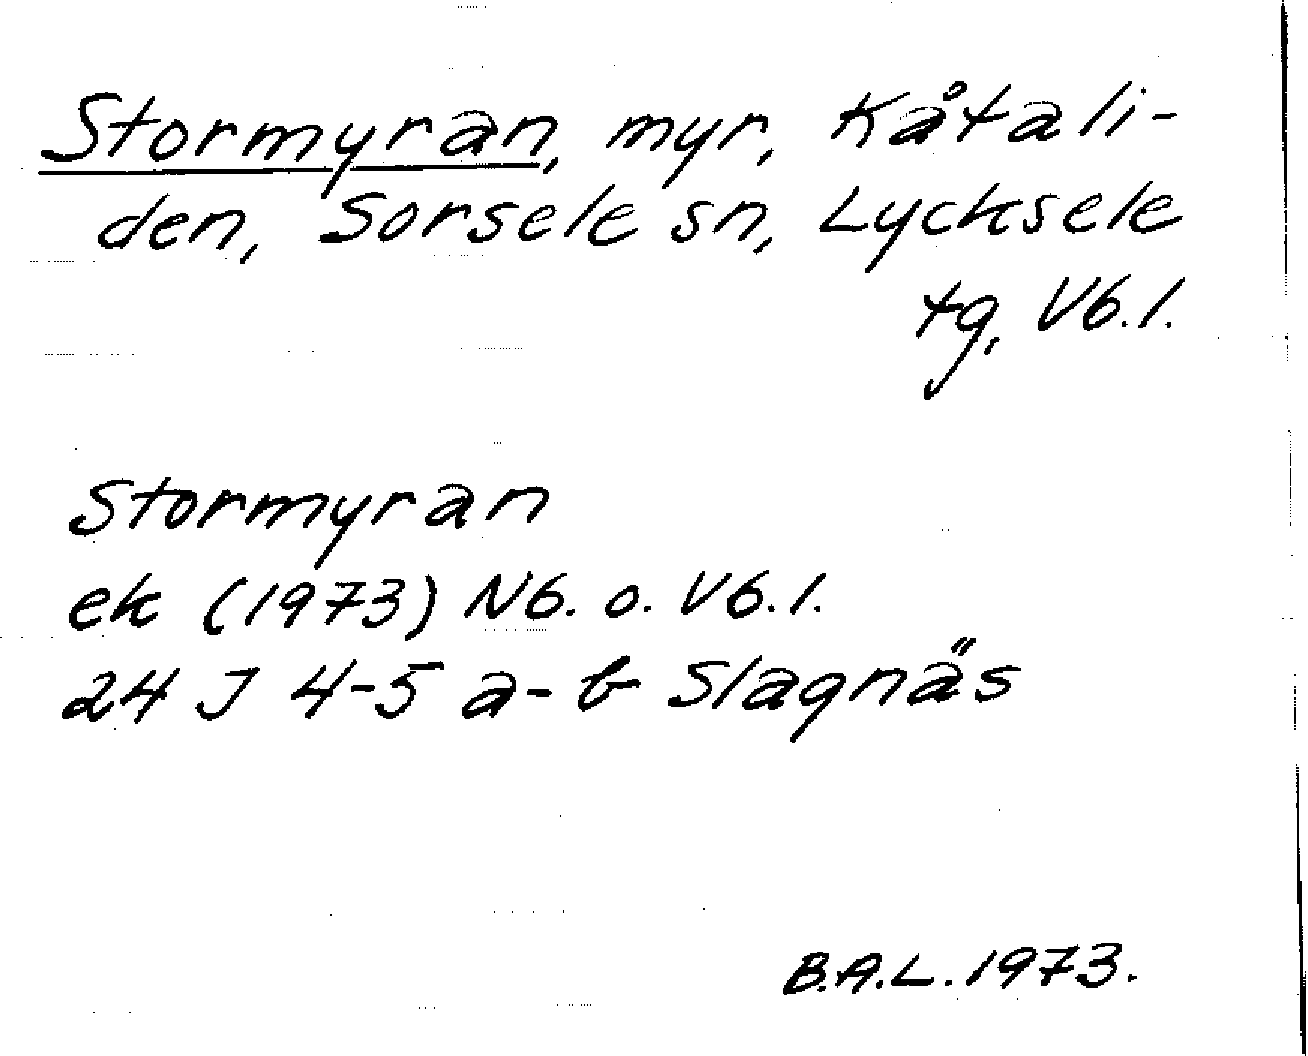 Stormyran, myr, Kåtali-
den, Sorsele sn, Lycksele
tg, Vb.l.
Stormyran
ek (1973) Nb. o. Vb.l.
24 J 4-5 a-b Slagnäs
B.A.L. 1973.